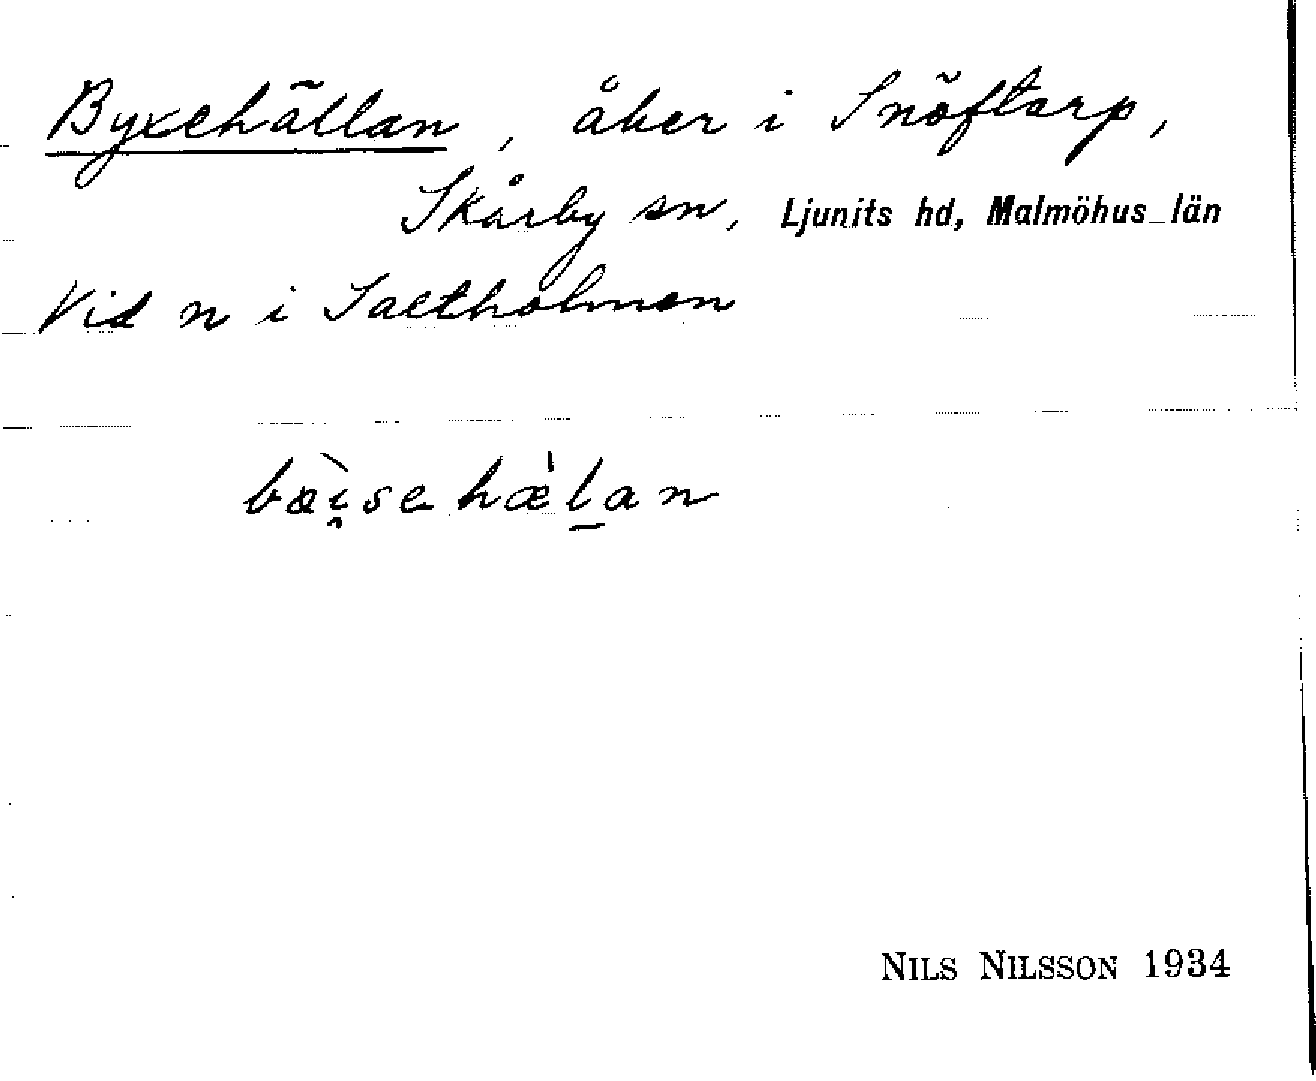 Byxehällan, åker i Snöftarp,
Skårby sn, Ljunits hd, Malmöhus län
Vid n i Saltholmen
Nils Nilsson 1934